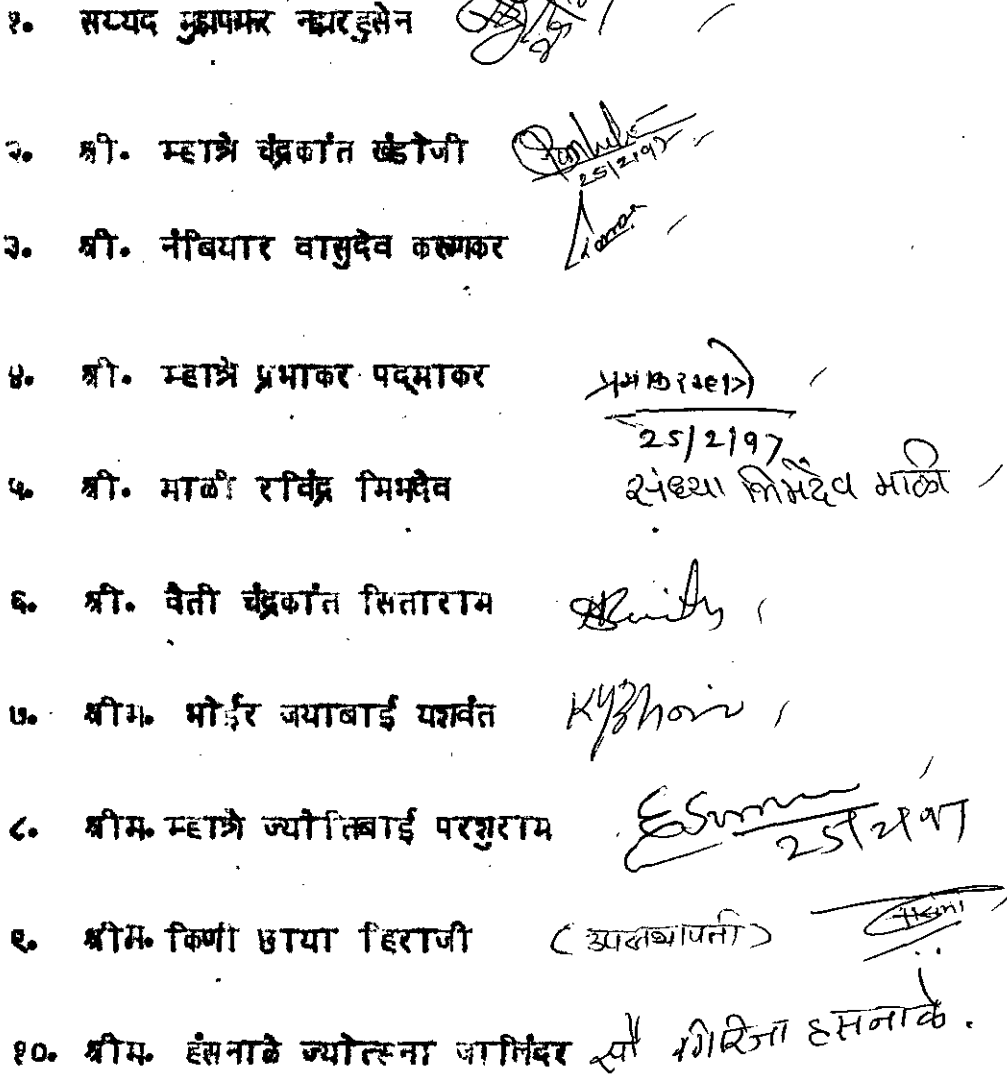 १. सय्यद मुझफ्फर नझरहुसेन
२. श्री. म्हात्रे चंद्रकांत खंडोजी
25/2/97
३. श्री. नंबियार वासुदेव करुणाकर
४. श्री. म्हात्रे प्रभाकर पद्माकर प्रभाकर म्हात्रे
25/2/97
५. श्री. माळी रविंद्र भिमदेव संध्या भिमदेव माळी
६. श्री. वैती चंद्रकांत सिताराम
७. श्रीम. भोईर जयाबाई यशवंत KYBhoir
८. श्रीम. म्हात्रे ज्योतिबाई परशुराम
25/2/97
९. श्रीम. किणी छाया हिराजी (उपसभापती)
१०. श्रीम. हंसनाळे ज्योत्स्ना जालिंदर सौ गिरिजा हसनाळे.